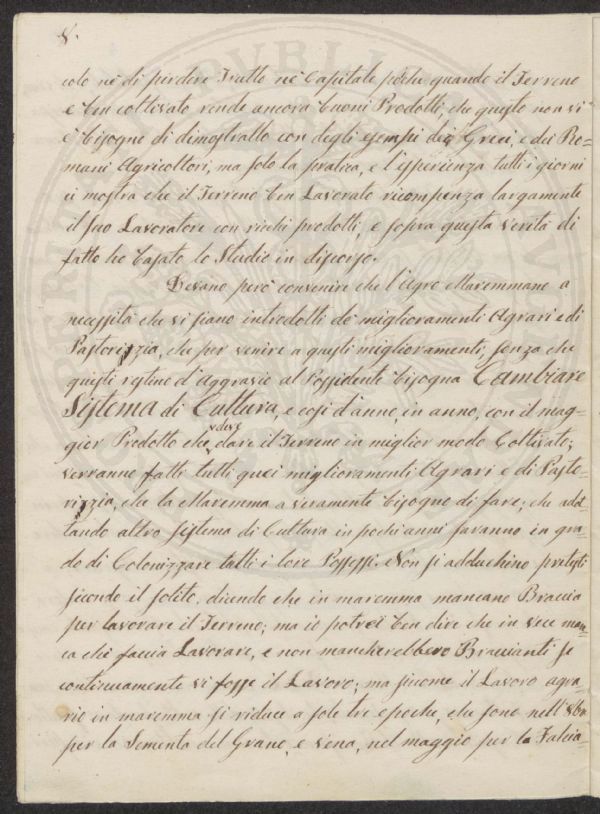 8.
colo nè di perdere Frutto nè Capitale poiche quando il Terreno
e ben coltivato rende ancora buoni Prodotti, che questo non vi
è bisogno di dimostrallo con degli esempi dei Greci, e dei Ro-
mani Agricoltori, ma solo la pratica, e l'esperienza tutti i giorni
ci mostra che il Terreno ben Lavorato ricompenza largamente
il suo Lavoratore con richi prodotti, e sopra questa verità di
fatto ho basato lo Studio in discorso.
Devano però convenire che l'Agro Maremmano a
necessità che vi siano introdotti de' miglioramenti Agrari e di
Pastorizzia, che per venire a questi miglioramenti, senza che
questi restino d'Aggravio al Possidente bisogna Cambiare
Sistema di Cultura, e così d'anno, in anno, con il mag-
gior Prodotto che deve dare il Terreno in miglior modo Coltivato;
verranno fatte tutti quei miglioramenti Agrari e di Pasto-
rizzia, che la Maremma a veramente bisogno di fare; che adot-
tando altro sistema di Cultura in pochi anni saranno in gra-
do di Colonizzare tutti i loro Possessi. Non si adduchino pretesti
secondo il solito, dicendo che in maremma mancano Braccia
per lavorare il Terreno; ma io potrei ben dire che in vece man-
ca chi faccia Lavorare, e non mancherebbero Braccianti se
continuamente vi fosse il Lavoro; ma sicome il Lavoro agra-
rio in maremma si riduce a sole tre epoche, che sono nell'8bre
per la Sementa del Grano, e Vena, nel maggio per la Falcia-